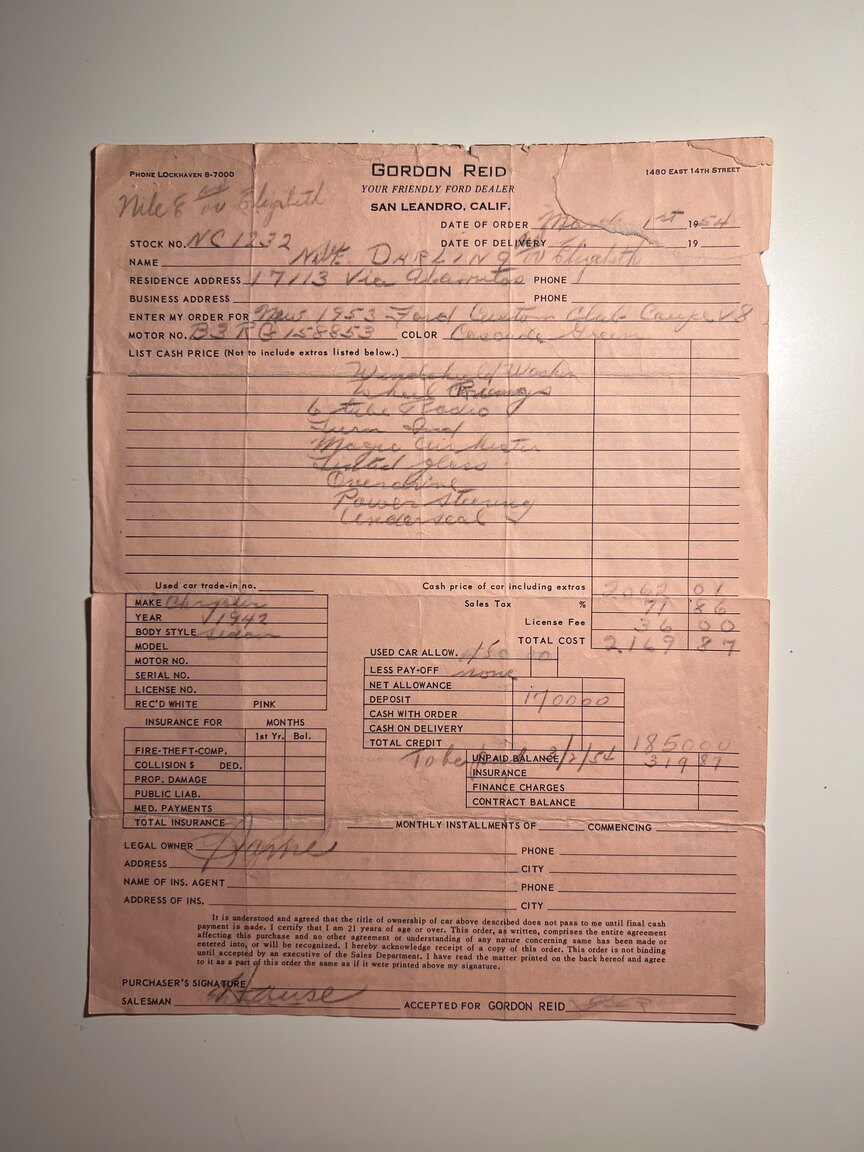 PHONE LOCKHAVEN 8-7000
GORDON REID
1480 EAST 14TH STREET
YOUR FRIENDLY FORD DEALER
Nile E and or Elizabeth
SAN LEANDRO, CALIF.
DATE OF ORDER March 1st 1954
STOCK NO. NC 1232 DATE OF DELIVERY 19
NAME Nile E. DARLING or Elizabeth
RESIDENCE ADDRESS 17113 Via Alamitos PHONE
BUSINESS ADDRESS PHONE
ENTER MY ORDER FOR New 1953 Ford Custom Club Coupe V8
MOTOR NO. B3RG158853 COLOR Cascade Green
LIST CASH PRICE (Not to include extras listed below.)
Windshield Washer
Wheel Rings
6 tube Radio
Turn Ind
Magic Air heater
Tinted glass
Overdrive
Power Steering
Underseal
Used car trade-in no. Cash price of car including extras 2062 01
MAKE Chrysler Sales Tax % 71 86
YEAR 1942 License Fee 36 00
BODY STYLE Sedan TOTAL COST 2169 87
MODEL USED CAR ALLOW. 150 00
MOTOR NO. LESS PAY-OFF none
SERIAL NO. NET ALLOWANCE
LICENSE NO. DEPOSIT 1700 00
REC'D WHITE PINK CASH WITH ORDER
INSURANCE FOR MONTHS CASH ON DELIVERY
1st Yr. Bal. TOTAL CREDIT 1850 00
FIRE-THEFT-COMP. To be 3/2/54 UNPAID BALANCE 319 87
COLLISION $ DED. INSURANCE
PROP. DAMAGE FINANCE CHARGES
PUBLIC LIAB. CONTRACT BALANCE
MED. PAYMENTS
TOTAL INSURANCE MONTHLY INSTALLMENTS OF COMMENCING
LEGAL OWNER Same PHONE
ADDRESS CITY
NAME OF INS. AGENT PHONE
ADDRESS OF INS. CITY
It is understood and agreed that the title of ownership of car above described does not pass to me until final cash
payment is made. I certify that I am 21 years of age or over. This order, as written, comprises the entire agreement
affecting this purchase and no other agreement or understanding of any nature concerning same has been made or
entered into, or will be recognized. I hereby acknowledge receipt of a copy of this order. This order is not binding
until accepted by an executive of the Sales Department. I have read the matter printed on the back hereof and agree
to it as a part of this order the same as if it were printed above my signature.
PURCHASER'S SIGNATURE
SALESMAN ACCEPTED FOR GORDON REID